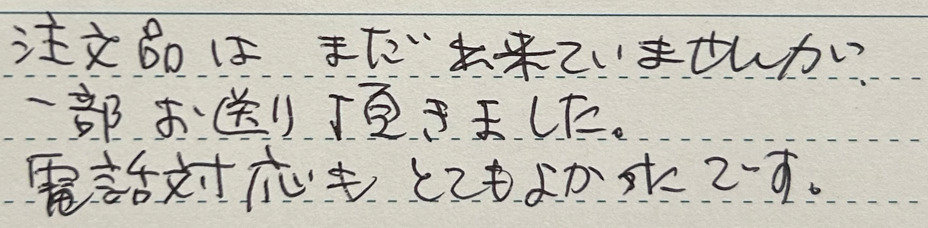 注文品は まだ出来ていませんが、
一部お送り頂きました。
電話対応も とてもよかったです。